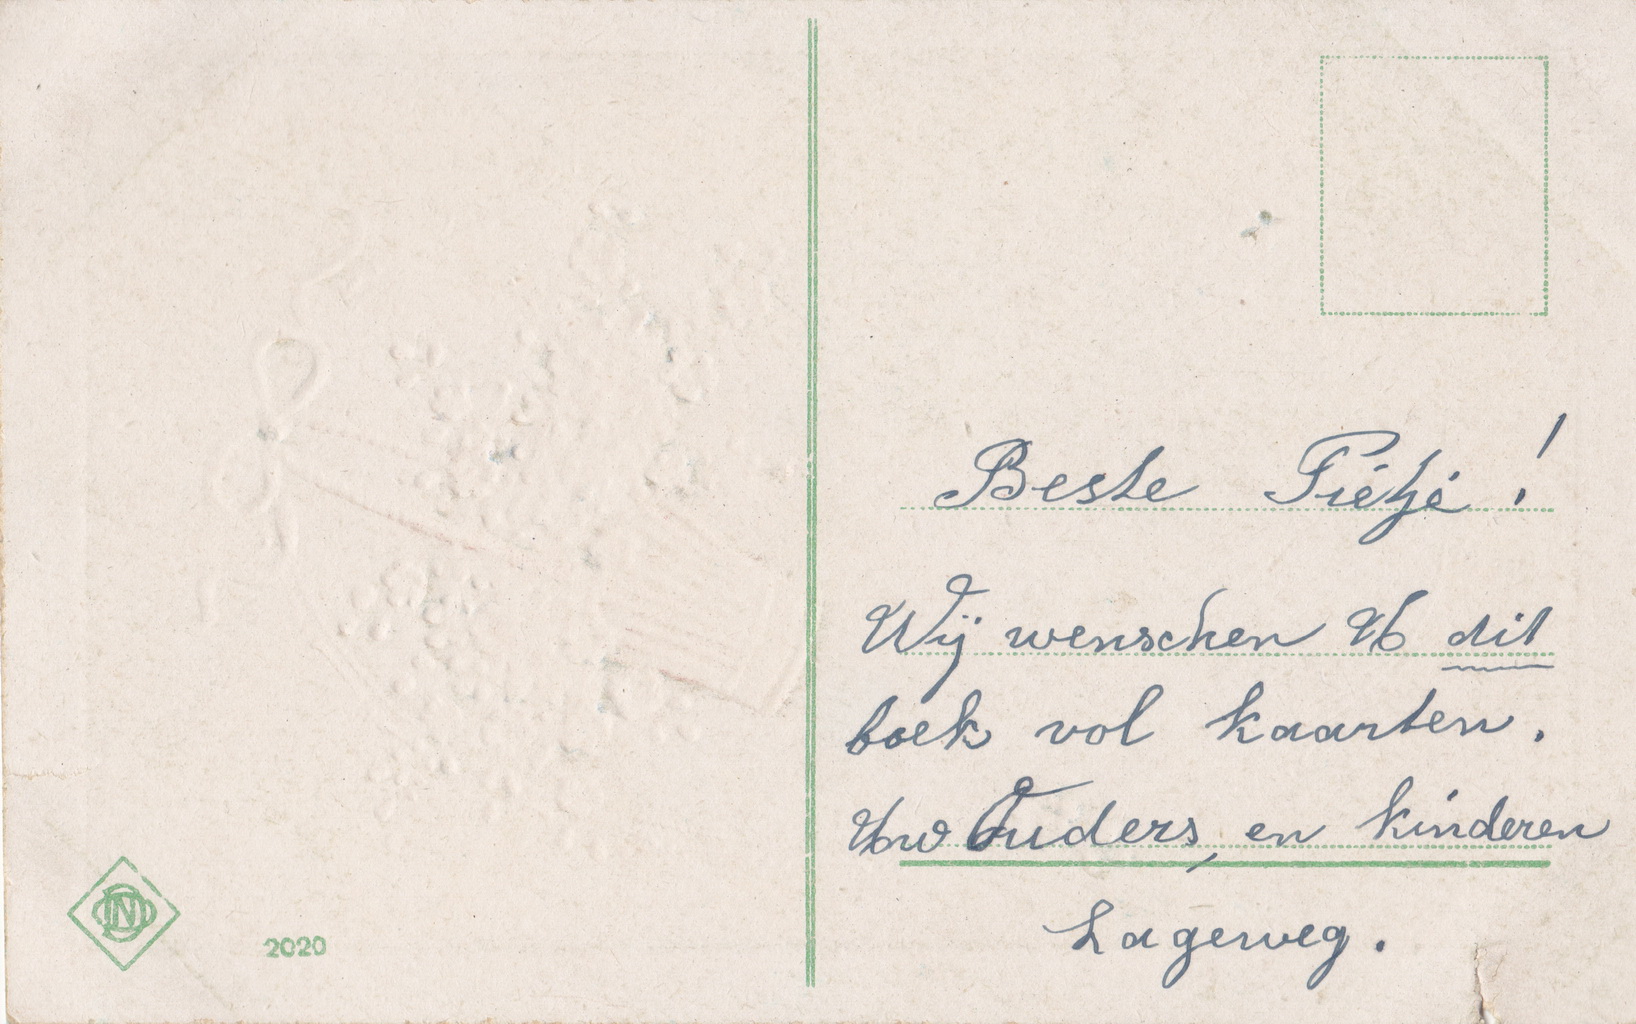 Beste Fietje!
Wij wenschen U dit
boek vol kaarten.
Uw Ouders, en kinderen
Lageweg.
2020